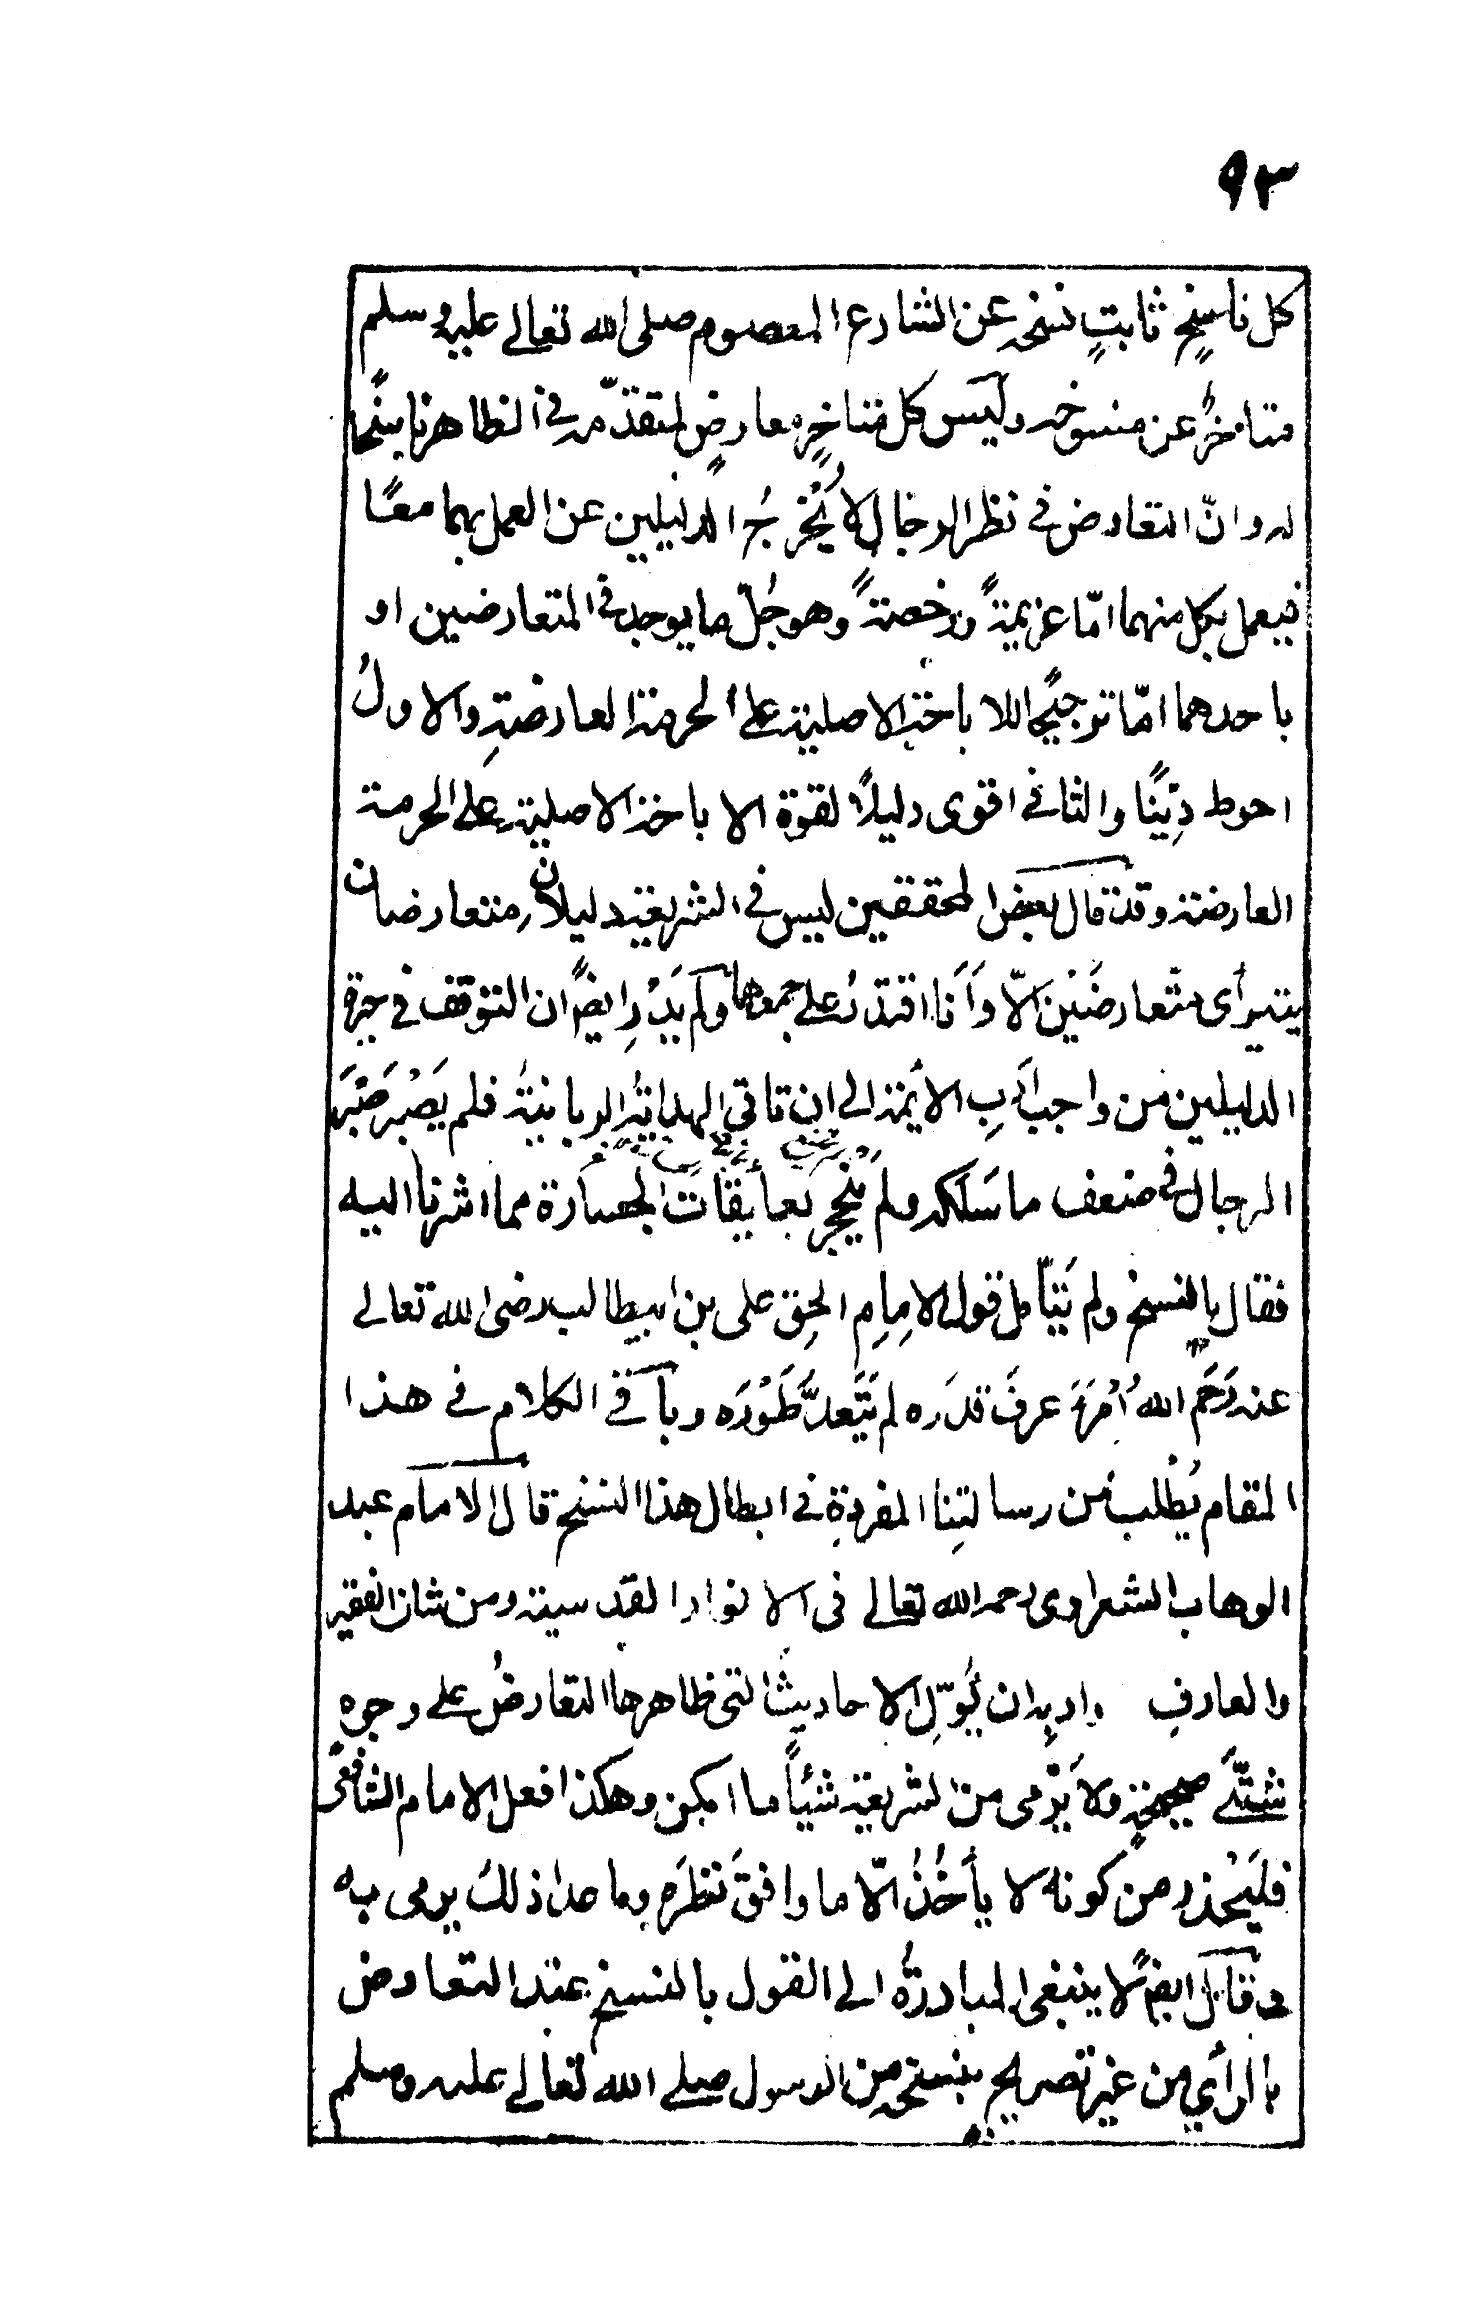 ٩٣
كل ناسخٍ ثابتٍ نسخه عن الشارع المعصوم صلى الله تعالى عليه وسلم
متاخرٌ عن منسوخه وليس كل متاخرٍ معارضٍ لمتقدّمه فى الظاهر ناسخًا
له وانّ التعارض فى نظر الرجال لا يُخْرجُ الدليلين عن العمل بهما معًا
فيعمل بكل منهما امّا عزيمةً ورخصةً وهو جُلّ ما يوجد فى المتعارضين او
باحدهما امّا ترجيحًا للاباحة الاصلية على الحرمة العارضةِ والاولُ
احوط دِيْنًا والثانى اقوى دليلًا لقوة الاباحة الاصلية على الحرمة
العارضة وقد قال بعض المحققين ليس فى الشريعة دليلان متعارضان
متعارضَيْن الّا وَاَنا اقتدرُ على جمعهما ولم يَدْرِ ايضًا ان التوقف فى
الدليلين من واجب ادبِ الائمة الى ان تاتى الهداية الربانية فلم يَصْبِر صَبْرَ
الرجال فى ضعف ما سَلَكه ولم الجسارة مما اشرنا اليه
فقال بالنسخ ولم يَتَأمّل قول الامامِ الحق على بن ابيطالب رضى الله تعالى
عنه رَحِمَ الله اُمْرَءً عرفَ قدرَه لم يَتَعدَّ طَوْرَه وباقى الكلام فى هذا
المقام يُطلب من رسالتِنا المفردةِ فى ابطال هذا النسخ قال الامام عبد
الوهاب الشعراوى رحمه الله تعالى فى الانوار القدسية ومن شان الفقير
والعارفِ وادبه ان يُوّلِ الاحاديث التى ظاهرها التعارضُ على وجوه
شتّى صحيحةٍ ولا يَرْمى من الشريعة شيئاً ما امكن وهكذا فعل الامام الشافعى
فليَحْذر من كونه لا يأخُذُ الّا ما وافقَ نظرَه وما عدا ذلك يرمى به
قال ايضًا لا ينبغى المبادرةُ الى القول بالنسخ عند التعارض
بالرأي من غير تصريحٍ بنسخه من الرسول صلى الله تعالى عليه وسلم